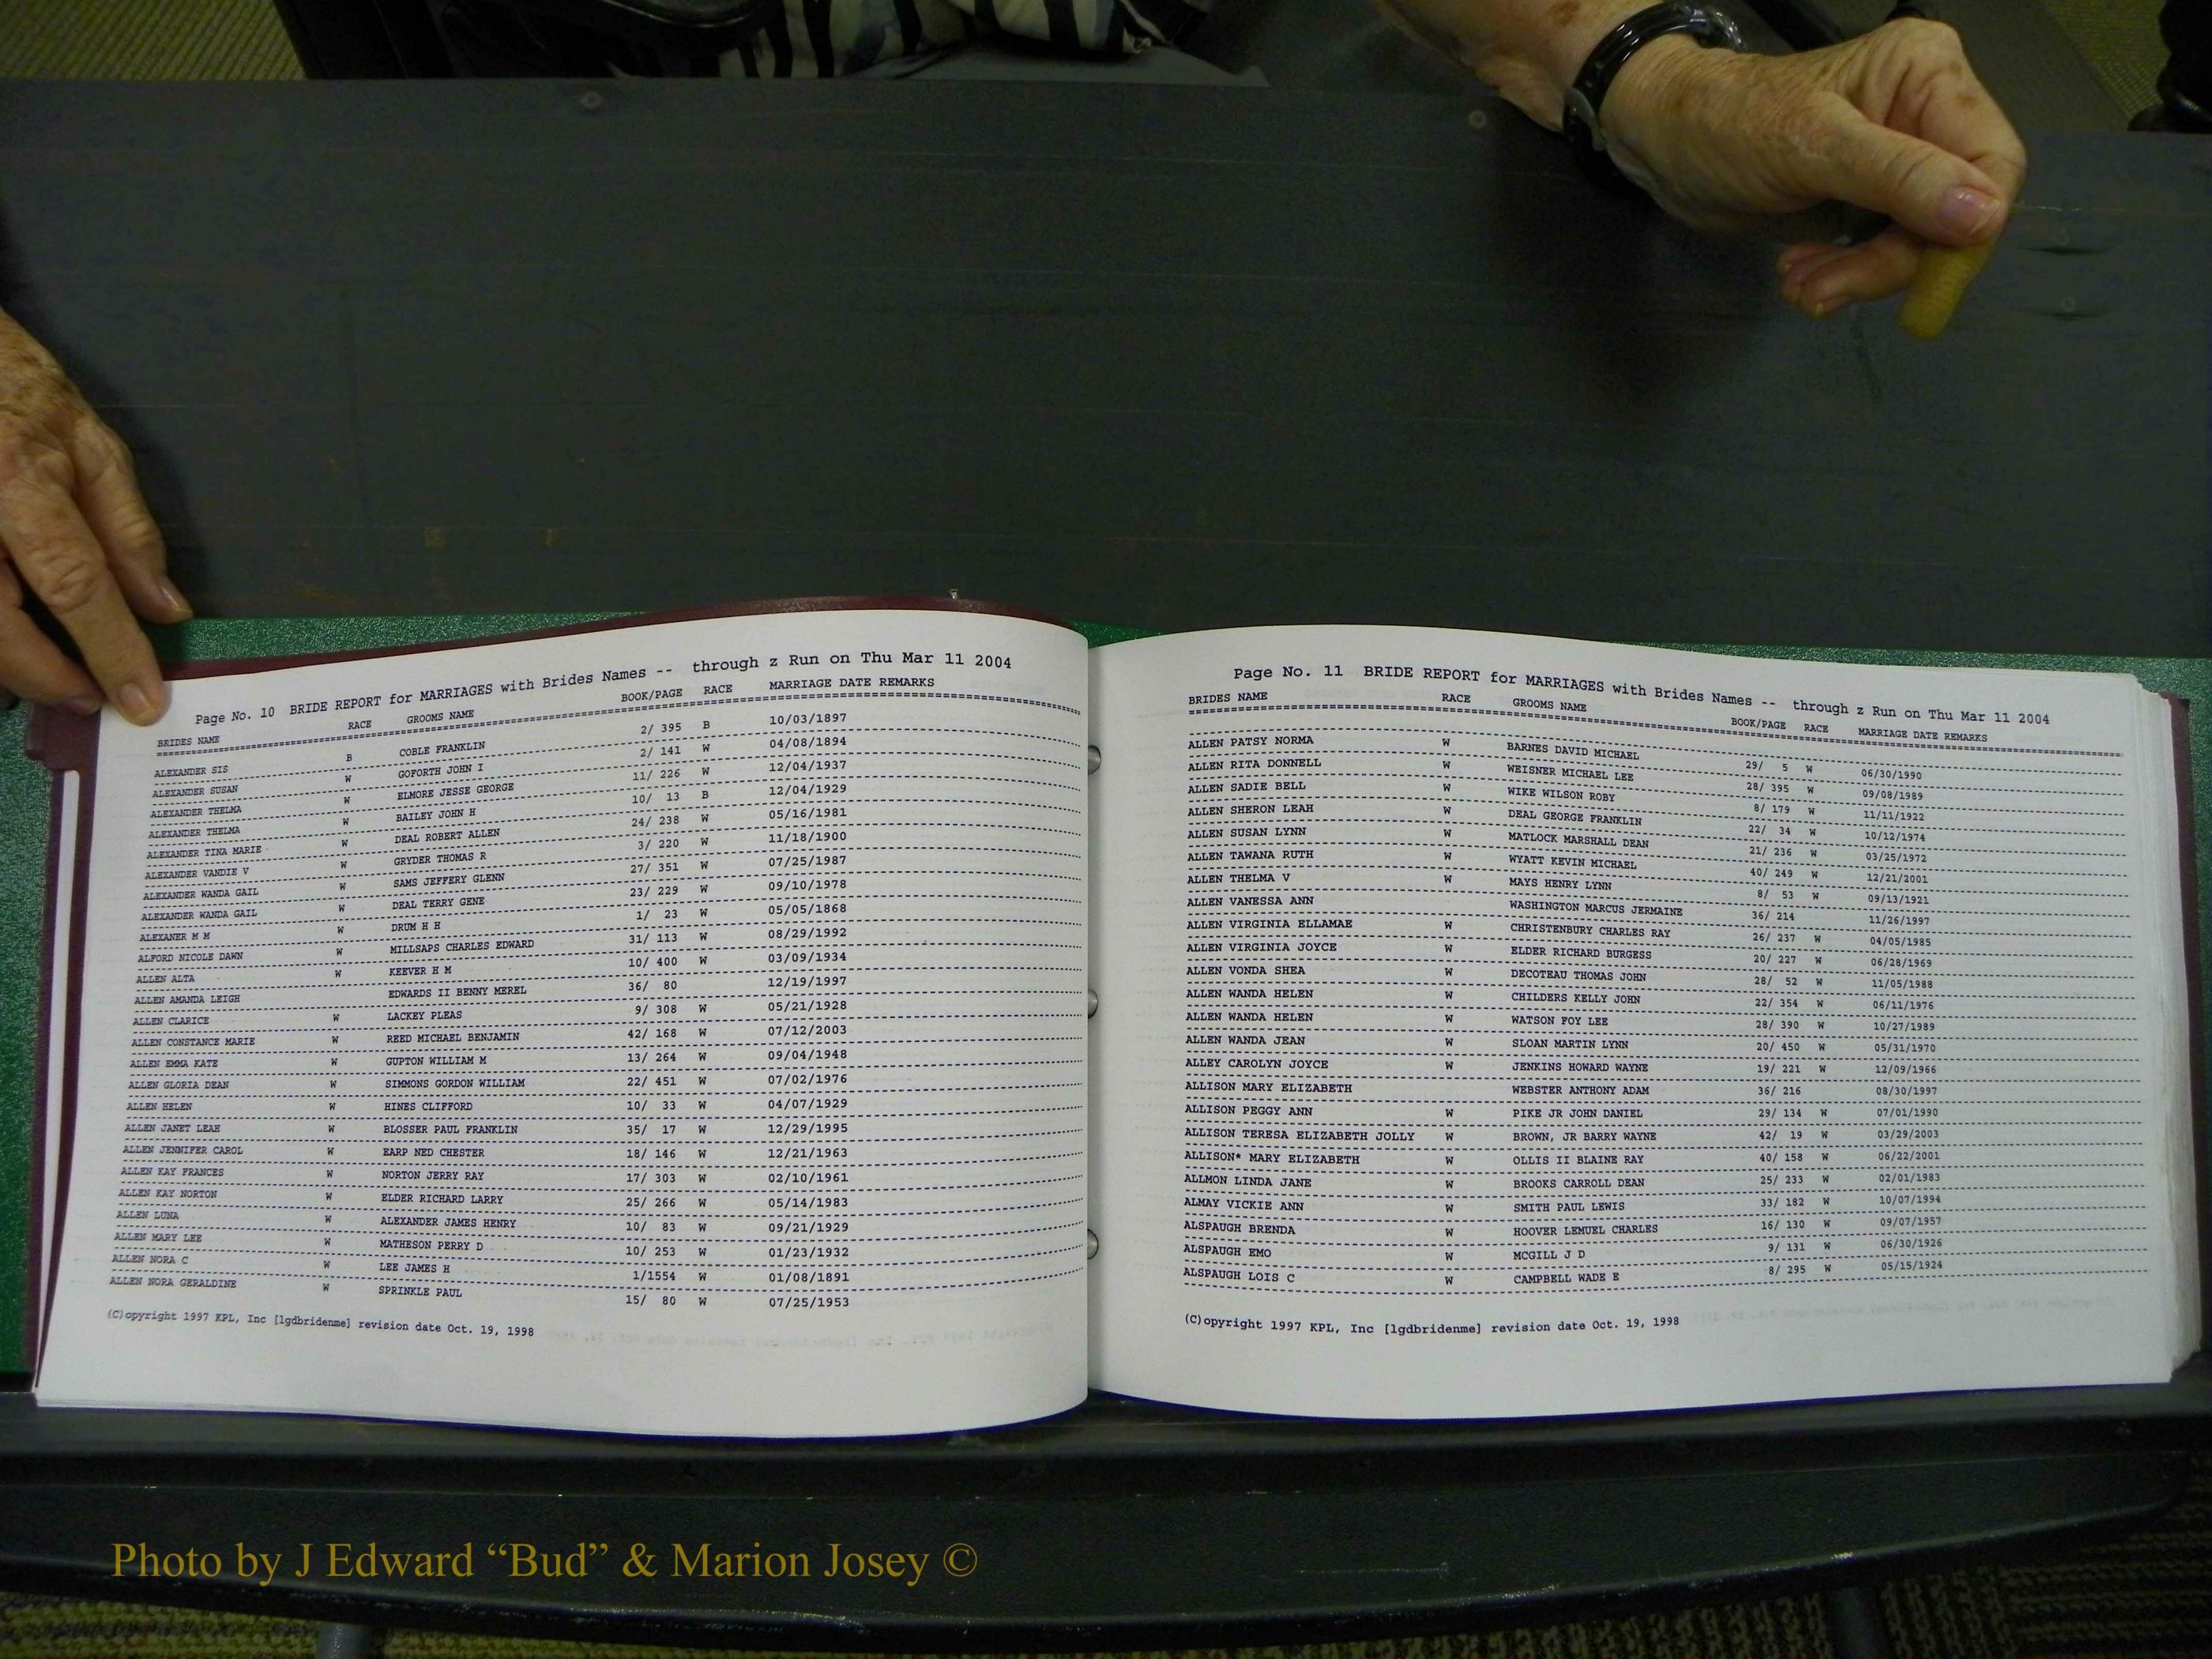 Page No. 10 BRIDE REPORT for MARRIAGES with Brides Names -- through z Run on Thu Mar 11 2004
BRIDES NAME RACE GROOMS NAME BOOK/PAGE RACE MARRIAGE DATE REMARKS
ALEXANDER SIS B COBLE FRANKLIN 2/ 395 B 10/03/1897
ALEXANDER SUSAN W GOFORTH JOHN I 2/ 141 W 04/08/1894
ALEXANDER THELMA W ELMORE JESSE GEORGE 11/ 226 W 12/04/1937
ALEXANDER THELMA W BAILEY JOHN H 10/ 13 B 12/04/1929
ALEXANDER TINA MARIE W DEAL ROBERT ALLEN 24/ 238 W 05/16/1981
ALEXANDER VANDIE V W GRYDER THOMAS R 3/ 220 W 11/18/1900
ALEXANDER WANDA GAIL W SAMS JEFFERY GLENN 27/ 351 W 07/25/1987
ALEXANDER WANDA GAIL W DEAL TERRY GENE 23/ 229 W 09/10/1978
ALEXANER M M W DRUM H H 1/ 23 W 05/05/1868
ALFORD NICOLE DAWN W MILLSAPS CHARLES EDWARD 31/ 113 W 08/29/1992
ALLEN ALTA W KEEVER H M 10/ 400 W 03/09/1934
ALLEN AMANDA LEIGH EDWARDS II BENNY MEREL 36/ 80 12/19/1997
ALLEN CLARICE W LACKEY PLEAS 9/ 308 W 05/21/1928
ALLEN CONSTANCE MARIE W REED MICHAEL BENJAMIN 42/ 168 W 07/12/2003
ALLEN EMMA KATE W GUPTON WILLIAM M 13/ 264 W 09/04/1948
ALLEN GLORIA DEAN W SIMMONS GORDON WILLIAM 22/ 451 W 07/02/1976
ALLEN HELEN W HINES CLIFFORD 10/ 33 W 04/07/1929
ALLEN JANET LEAH W BLOSSER PAUL FRANKLIN 35/ 17 W 12/29/1995
ALLEN JENNIFER CAROL W EARP NED CHESTER 18/ 146 W 12/21/1963
ALLEN KAY FRANCES W NORTON JERRY RAY 17/ 303 W 02/10/1961
ALLEN KAY NORTON W ELDER RICHARD LARRY 25/ 266 W 05/14/1983
ALLEN LUNA W ALEXANDER JAMES HENRY 10/ 83 W 09/21/1929
ALLEN MARY LEE W MATHESON PERRY D 10/ 253 W 01/23/1932
ALLEN NORA C W LEE JAMES H 1/1554 W 01/08/1891
ALLEN NORA GERALDINE W SPRINKLE PAUL 15/ 80 W 07/25/1953
(C)opyright 1997 KPL, Inc [lgdbridenme] revision date Oct. 19, 1998
Page No. 11 BRIDE REPORT for MARRIAGES with Brides Names -- through z Run on Thu Mar 11 2004
BRIDES NAME RACE GROOMS NAME BOOK/PAGE RACE MARRIAGE DATE REMARKS
ALLEN PATSY NORMA W BARNES DAVID MICHAEL 29/ 5 W 06/30/1990
ALLEN RITA DONNELL W WEISNER MICHAEL LEE 28/ 395 W 09/08/1989
ALLEN SADIE BELL W WIKE WILSON ROBY 8/ 179 W 11/11/1922
ALLEN SHERON LEAH W DEAL GEORGE FRANKLIN 22/ 34 W 10/12/1974
ALLEN SUSAN LYNN W MATLOCK MARSHALL DEAN 21/ 236 W 03/25/1972
ALLEN TAWANA RUTH W WYATT KEVIN MICHAEL 40/ 249 W 12/21/2001
ALLEN THELMA V W MAYS HENRY LYNN 8/ 53 W 09/13/1921
ALLEN VANESSA ANN WASHINGTON MARCUS JERMAINE 36/ 214 11/26/1997
ALLEN VIRGINIA ELLAMAE W CHRISTENBURY CHARLES RAY 26/ 237 W 04/05/1985
ALLEN VIRGINIA JOYCE W ELDER RICHARD BURGESS 20/ 227 W 06/28/1969
ALLEN VONDA SHEA W DECOTEAU THOMAS JOHN 28/ 52 W 11/05/1988
ALLEN WANDA HELEN W CHILDERS KELLY JOHN 22/ 354 W 06/11/1976
ALLEN WANDA HELEN W WATSON FOY LEE 28/ 390 W 10/27/1989
ALLEN WANDA JEAN W SLOAN MARTIN LYNN 20/ 450 W 05/31/1970
ALLEY CAROLYN JOYCE W JENKINS HOWARD WAYNE 19/ 221 W 12/09/1966
ALLISON MARY ELIZABETH WEBSTER ANTHONY ADAM 36/ 216 08/30/1997
ALLISON PEGGY ANN W PIKE JR JOHN DANIEL 29/ 134 W 07/01/1990
ALLISON TERESA ELIZABETH JOLLY W BROWN, JR BARRY WAYNE 42/ 19 W 03/29/2003
ALLISON* MARY ELIZABETH W OLLIS II BLAINE RAY 40/ 158 W 06/22/2001
ALLMON LINDA JANE W BROOKS CARROLL DEAN 25/ 233 W 02/01/1983
ALMAY VICKIE ANN W SMITH PAUL LEWIS 33/ 182 W 10/07/1994
ALSPAUGH BRENDA W HOOVER LEMUEL CHARLES 16/ 130 W 09/07/1957
ALSPAUGH EMO W MCGILL J D 9/ 131 W 06/30/1926
ALSPAUGH LOIS C W CAMPBELL WADE E 8/ 295 W 05/15/1924
(C)opyright 1997 KPL, Inc [lgdbridenme] revision date Oct. 19, 1998
Photo by J Edward “Bud” & Marion Josey ©